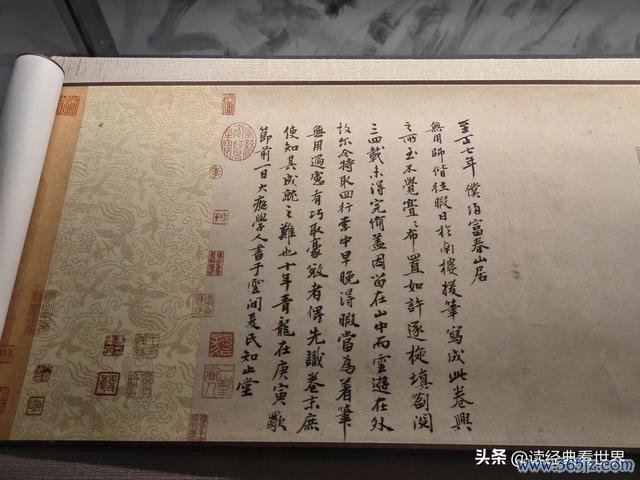 至正七年僕歸富春山居
無用師偕往暇日於南樓援筆寫成此卷興
之所至不覺亹亹布置如許逐旋填劄閱
三四載未得完備蓋因留在山中而雲遊在外
故爾今特取回行李中早晚得暇當為著筆
無用過慮有巧取豪敚者俾先識卷末庶
使知其成就之難也十年青龍在庚寅歜
節前一日大癡學人書于雲間夏氏知止堂
头条 @读经典看世界
www.365jz.com